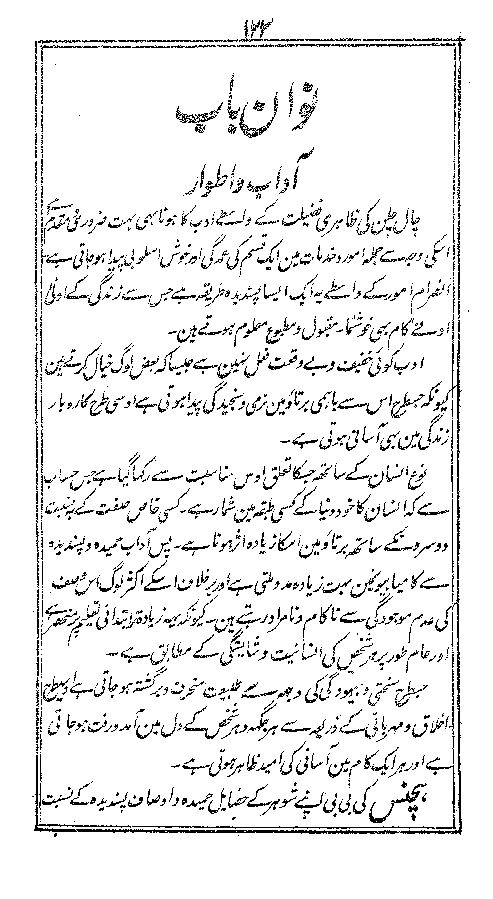 ۱۲۲
نوان باب
آداب و اطوار
چال چلن کی ظاہری فضیلت کے واسطے ادب کا ہونا ہی بہت ضروری و مقدم ہے
اسکی وجہ سے جملہ امور و خدمات مین ایک قسم کی عمدگی اور خوش اسلوبی پیدا ہوجاتی ہے
انصرام امور کے واسطے یہ ایک ایسا پسندیدہ طریقہ ہے جس سے زندگی کے ادنیٰ
ادنےٰ کام بھی خوشنما۔ مقبول و مطبوع معلوم ہوتے ہین۔
ادب کوئی خفیف و بے وقعت فعل نہین ہے جیسا کہ بعض لوگ خیال کرتے ہین
کیونکہ جسطرح اس سے باہمی برتاؤ مین نرمی و سنجیدگی پیدا ہوتی ہے اوسی طرح کاروبار
زندگی مین بھی آسانی ہوتی ہے۔
نوع انسان کے ساتھ جسکا تعلق اوس مناسبت سے رکھا گیا ہے جس حساب
سے کہ انسان کا خود دنیا کے کسی طبقہ مین شمار ہے۔ کسی خاص صفت کے بہ نسبت
دوسرونکے ساتھ برتاؤ مین اسکا زیادہ اثر ہوتا ہے۔ پس آداب حمیدہ و پسندیدہ
سے کامیابیونمین بہت زیادہ مدد ملتی ہے اور برخلاف اسکے اکثر لوگ اس صفت
کی عدم موجودگی سے ناکام و نامراد رہتے ہین۔ کیونکہ یہ زیادہ تر ابتدائی تعلیم پر منحصر ہے
اور عام طور پر ہر شخص کی انسانیت و شایستگی کے مطابق ہے۔
جسطرح سختی و بیہودگی کی وجہ سے طبیعت منحرف و برگشتہ ہوجاتی ہے اوسیطرح
اخلاق و مہربانی کے ذریعہ سے ہر جگہ و ہر شخص کے دل مین آمد و رفت ہوجاتی
ہے اور ہر ایک کام مین آسانی کی امید ظاہر ہوتی ہے۔
ہچنس کی بی بی اپنے شوہر کے خصایل حمیدہ و اوصاف پسندیدہ کے نسبت